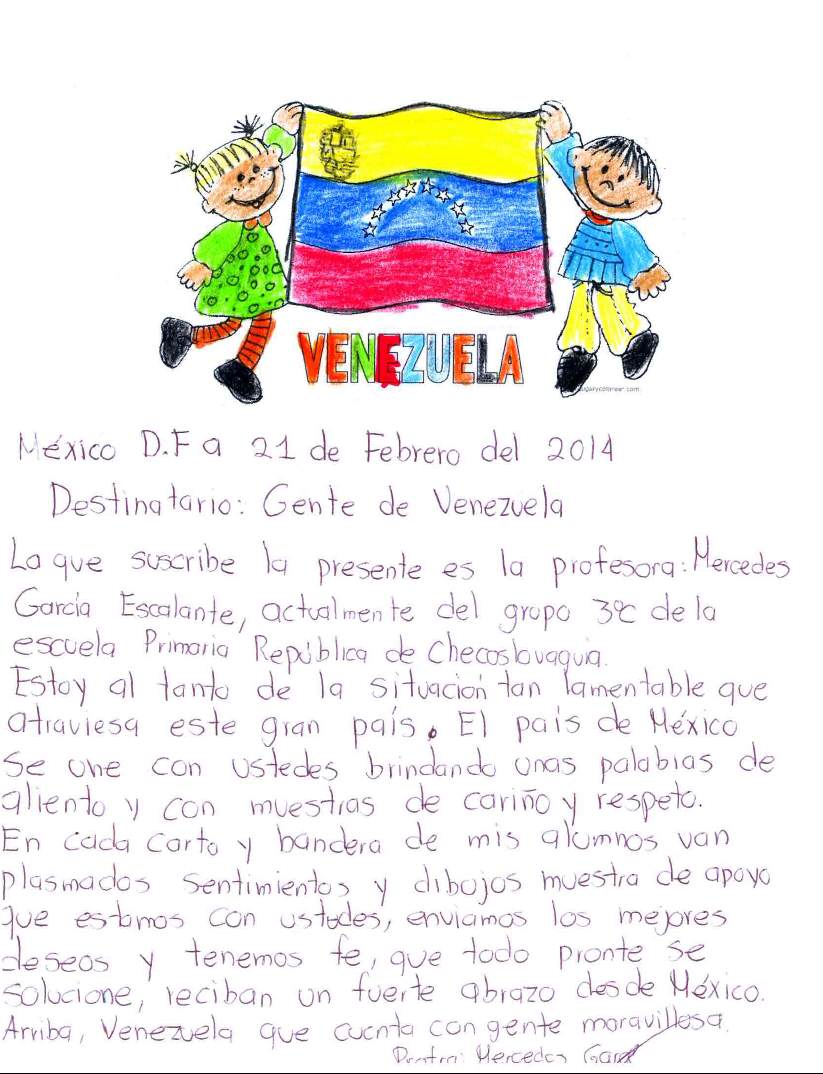 VENEZUELA
México D.F a 21 de Febrero del 2014
Destinatario: Gente de Venezuela
La que suscribe la presente es la profesora: Mercedes
García Escalante, actualmente del grupo 3ºc de la
escuela Primaria República de Checoslovaquia.
Estoy al tanto de la situación tan lamentable que
atraviesa este gran país. El país de México
se une con ustedes brindando unas palabras de
aliento y con muestras de cariño y respeto.
En cada carta y bandera de mis alumnos van
plasmados sentimientos y dibujos muestra de apoyo
que estamos con ustedes, enviamos los mejores
deseos y tenemos fe, que todo pronte se
solucione, reciban un fuerte abrazo desde México.
Arriba, Venezuela que cuenta con gente maravillosa.
Mercedes